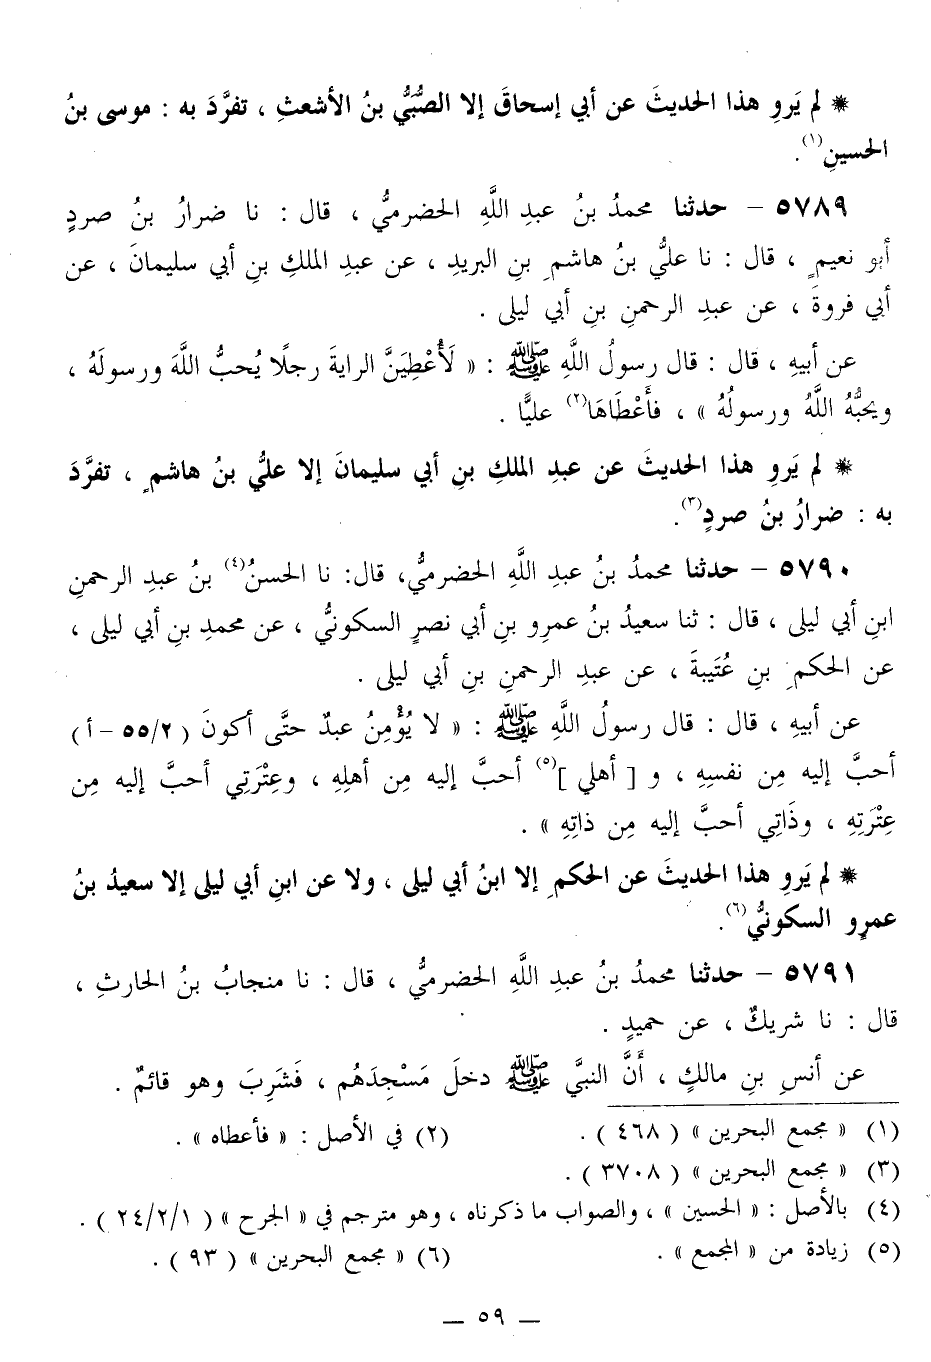 * لم يَروِ هذا الحديثَ عن أبي إسحاقَ إلا الصُّبَيُّ بنُ الأشعثِ ، تفرَّدَ به : موسى بنُ
الحسينِ(١).
٥٧٨٩ – حدثنا محمدُ بنُ عبدِ اللَّهِ الحضرميُّ ، قال : نا ضرارُ بنُ صردٍ
أبو نعيمٍ ، قال : نا عليُّ بنُ هاشمِ بنِ البريدِ ، عن عبدِ الملكِ بنِ أبي سليمانَ ، عن
أبي فروةَ ، عن عبدِ الرحمنِ بنِ أبي ليلى .
عن أبيهِ ، قال : قال رسولُ اللَّهِ ﷺ : « لَأُعْطِيَنَّ الرايةَ رجلًا يُحبُّ اللَّهَ ورسولَهُ ،
ويحبُّهُ اللَّهُ ورسولُهُ » ، فأَعْطَاهَا(٢) عليًّا .
* لم يَروِ هذا الحديثَ عن عبدِ الملكِ بنِ أبي سليمانَ إلا عليُّ بنُ هاشمٍ ، تفرَّدَ
به : ضرارُ بنُ صردٍ(٣).
٥٧٩٠ – حدثنا محمدُ بنُ عبدِ اللَّهِ الحضرميُّ، قال: نا الحسنُ(٤) بنُ عبدِ الرحمنِ
ابنِ أبي ليلى ، قال : ثنا سعيدُ بنُ عمرِو بنِ أبي نصرٍ السكونيُّ ، عن محمدِ بنِ أبي ليلى ،
عن الحكمِ بنِ عُتَيبةَ ، عن عبدِ الرحمنِ بنِ أبي ليلى .
عن أبيهِ ، قال : قال رسولُ اللَّهِ ﷺ : « لا يُؤْمِنُ عبدٌ حتَّى أكونَ ( ٥٥/٢ – أ )
أحبَّ إليه مِن نفسِهِ ، و [ أهلي ](٥) أحبَّ إليه مِن أهلِهِ ، وعِتْرَتِي أحبَّ إليه مِن
عِتْرَتِهِ ، وذَاتِي أحبَّ إليه مِن ذاتِهِ » .
* لم يَروِ هذا الحديثَ عن الحكمِ إلا ابنُ أبي ليلى ، ولا عن ابنِ أبي ليلى إلا سعيدُ بنُ
عمرٍو السكونيُّ(٦).
٥٧٩١ – حدثنا محمدُ بنُ عبدِ اللَّهِ الحضرميُّ ، قال : نا منجابُ بنُ الحارثِ ،
قال : نا شريكٌ ، عن حميدٍ .
عن أنسِ بنِ مالكٍ ، أَنَّ النبيَّ ﷺ دخلَ مَسْجِدَهُم ، فَشَرِبَ وهو قائمٌ .
(١) « مجمع البحرين » ( ٤٦٨ ) . (٢) في الأصل : « فأعطاه » .
(٣) « مجمع البحرين » ( ٣٧٠٨ ) .
(٤) بالأصل : « الحسين » ، والصواب ما ذكرناه ، وهو مترجم في « الجرح » ( ٢٤/٢/١ ) .
(٥) زيادة من « المجمع » . (٦) « مجمع البحرين » ( ٩٣ ) .
– ٥٩ –